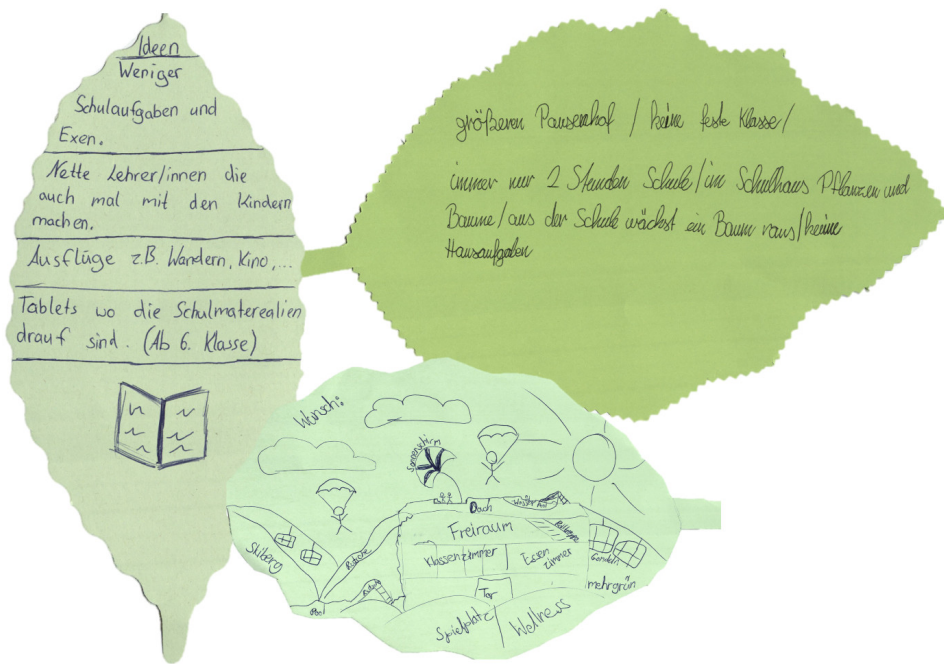 Ideen
Weniger
Schulaufgaben und
Exen.
Nette Lehrer/innen die
auch mal mit den Kindern
machen.
Ausflüge z.B. Wandern, Kino,...
Tablets wo die Schulmaterealien
drauf sind. (Ab 6. Klasse)
größeren Pausenhof / keine feste Klasse/
immer nur 2 Stunden Schule/im Schulhaus Pflanzen und
Bäume/aus der Schule wächst ein Baum raus/keine
Hausaufgaben
Wunsch:
Sonnenschirm
Dach
Freiraum
Rolltreppe
Skiberg
Rutsche
Klassenzimmer
Essen
zimmer
Gondeln
mehrgrün
Pool
Tor
Spielplatz
Wellness